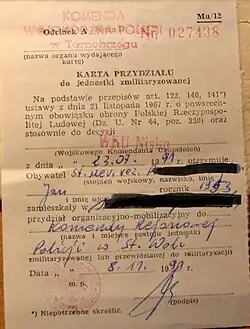 Mu/12
KOMENDA
Odcinek A
WOJEWÓDZKA POLICJI
w Tarnobrzegu
Nr 027438
(nazwa organu wydającego
kartę)
KARTA PRZYDZIAŁU
do jednostki zmilitaryzowanej
Na podstawie przepisów art. 122, 140, 141*)
ustawy z dnia 21 listopada 1967 r. o powszech-
nym obowiązku obrony Polskiej Rzeczypospo-
litej Ludowej (Dz. U. Nr 44, poz. 220) oraz
stosownie do decyzji
WKU Nisko
(Wojskowego Komendanta Uzupełnień)
z dnia „ 23.07 91 otrzymuje
Obywatel st. sierż. rez.
(stopień wojskowy, nazwisko, imię
Jan rocznik 1953
i imię ojca)
zamieszkały w
przydział organizacyjno-mobilizacyjny do
Komendy Rejonowej
(nazwa i miejsce postoju jednostki)
Policji w St. Woli
zmilitaryzowanej lub przewidzianej do militaryzacji)
Data „ 8.11. 1991 r.
m. p.
(podpis)
*) Niepotrzebne skreślić.